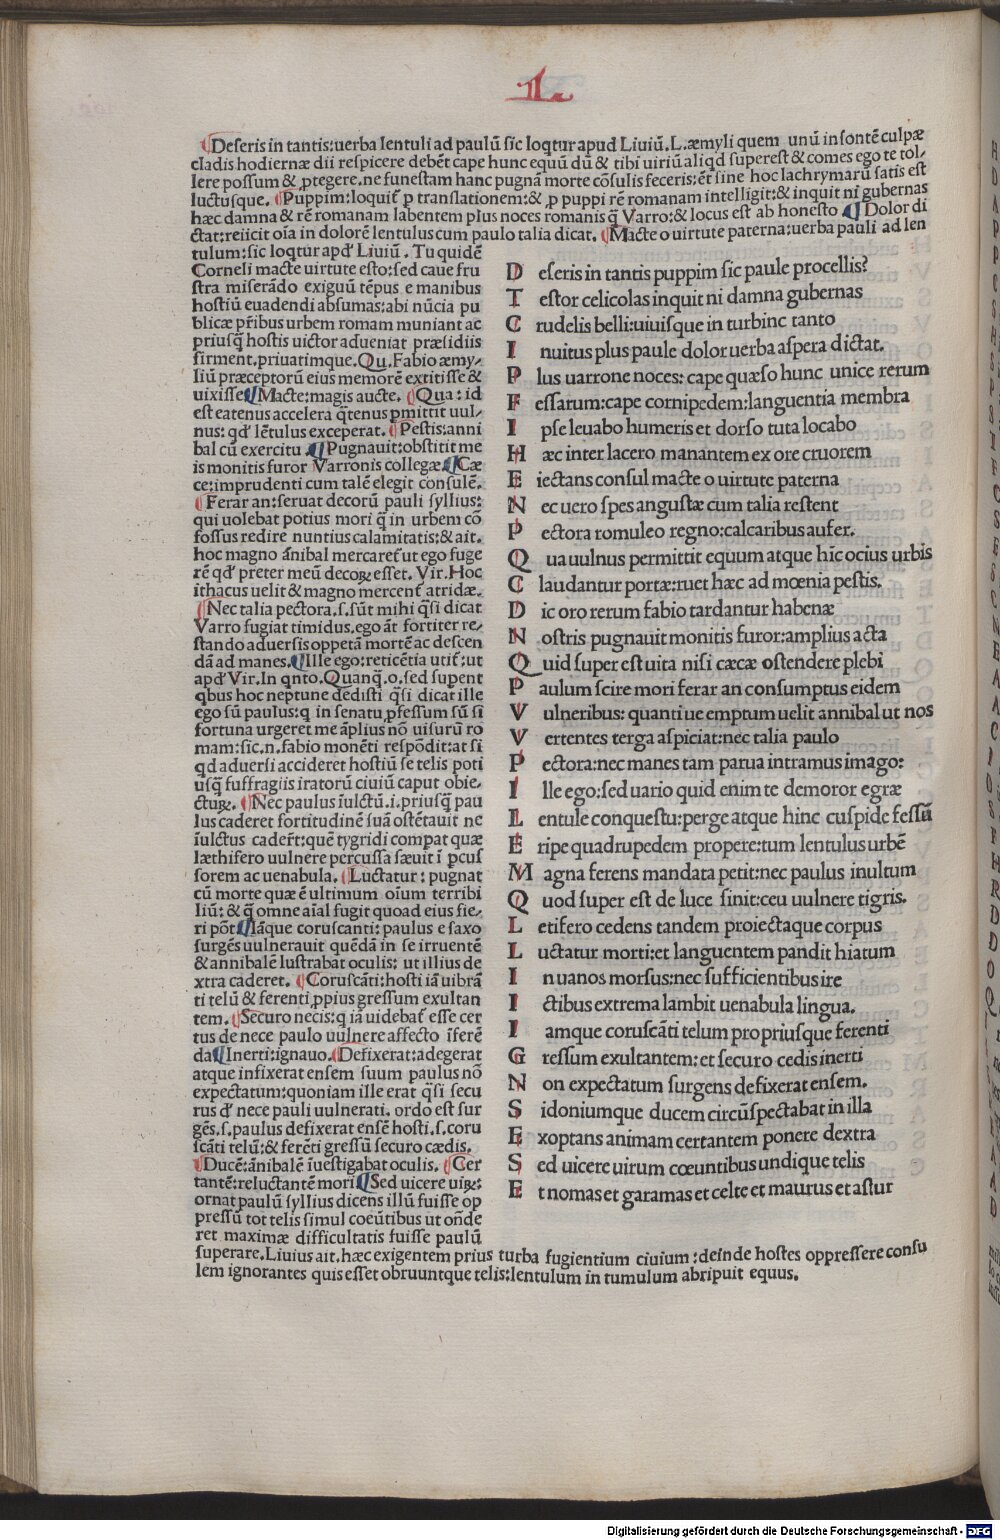 ¶Deseris in tantis:uerba lentuli ad paulū sic loqtur apud Liuiū.L.æmyli quem unū insontē culpæ
cladis hodiernæ dii respicere debēt cape hunc equū dū & tibi uiriū aliqd superest & comes ego te tol⸗
lere possum & ꝓtegere.ne funestam hanc pugnā morte cōsulis feceris:ēt sine hoc lachrymarū satis est
luctusque. ¶Puppim:loquit̄ p translationem:& ꝓ puppi rē romanam intelligit:& inquit ni gubernas
hæc damna & rē romanam labentem plus noces romanis q̄ Varro:& locus est ab honesto ¶Dolor di
ctat:reiicit oīa in dolorē lentulus cum paulo talia dicat. ¶Macte o uirtute paterna:uerba pauli ad len
tulum:sic loqtur apd' Liuiū. Tu quidē
Corneli macte uirtute esto:sed caue fru
stra miserādo exiguū tēpus e manibus
hostiū euadendi absumas:abi nūcia pu
blicæ pr̄ibus urbem romam muniant ac
priusq̄ hostis uictor adueniat præsidiis
firment.priuatimque.Qu.Fabio æmy⸗
liū præceptorū eius memorē extitisse &
uixisse ¶Macte:magis aucte. ¶Qua:id
est eatenus accelera q̄tenus pmittit uul⸗
nus:qd' lētulus exceperat. ¶Pestis:anni
bal cū exercitu ¶Pugnauit:obstitit me
is monitis furor Varronis collegæ ¶Cæ
ce:imprudenti cum talē elegit consulē.
¶Ferar an:seruat decorū pauli syllius:
qui uolebat potius mori q̄ in urbem cō
fossus redire nuntius calamitatis:& ait.
hoc magno ānibal mercaret̄ ut ego fuge
rē qd' preter meū decoꝝ esset. Vir.Hoc
ithacus uelit & magno mercent̄ atridæ.
¶Nec talia pectora.s.sūt mihi q̄si dicat
Varro fugiat timidus.ego āt fortiter re⸗
stando aduersis oppetā mortē ac descen
dā ad manes. ¶Ille ego:reticētia utit̄:ut
apd' Vir.In qnto.Quanq̄.o.sed supent
qbus hoc neptune dedisti q̄si dicat ille
ego sū paulus:q in senatu ꝓfessum sū si
fortuna urgeret me āplius nō uisurū ro
mam:sic.n.fabio monēti respōdit:at si
qd aduersi accideret hostiū se telis poti
usq̄ suffragiis iratorū ciuiū caput obie⸗
ctuꝝ. ¶Nec paulus īulctū.i.priusq̄ pau
lus caderet fortitudinē suā ostētauit ne
īulctus caderet̄:quē tygridi compat quæ
læthifero uulnere percussa sæuit ī pcus
sorem ac uenabula. ¶Luctatur: pugnat
cū morte quæ ē ultimum oīum terribi
liū: & q̄ omne aīal fugit quoad eius fie⸗
ri pōt ¶Iāque coruscanti: paulus e saxo
surgēs uulnerauit quēdā in se irruentē
& annibalē lustrabat oculis: ut illius de
xtra caderet. ¶Coruscāti:hosti iā uibrā
ti telū & ferenti ꝓpius gressum exultan
tem. ¶Securo necis:q iā uidebat̄ esse cer
tus de nece paulo uulnere affecto īferē
da ¶Inerti:ignauo. ¶Defixerat:adegerat
atque infixerat ensem suum paulus nō
expectatum:quoniam ille erat q̄si secu
rus d' nece pauli uulnerati. ordo est sur
gēs.s.paulus defixerat ensē hosti.s.coru
scāti telū:& ferēti gressū securo cædis.
¶Ducē:ānibalē īuestigabat oculis. ¶Cer
tantē:reluctantē mori ¶Sed uicere uiꝝ:
ornat paulū syllius dicens illū fuisse op
pressū tot telis simul coeūtibus ut ōnde
ret maximæ difficultatis fuisse paulū
superare.Liuius ait.hæc exigentem prius turba fugientium ciuium:deīnde hostes oppressere consu
lem ignorantes quis esset obruuntque telis:lentulum in tumulum abripuit equus.
D eseris in tantis puppim sic paule procellis?
T estor celicolas inquit ni damna gubernas
C rudelis belli:uiuisque in turbine tanto
I nuitus plus paule dolor uerba aspera dictat.
P lus uarrone noces: cape quæso hunc unice rerum
F essarum:cape cornipedem:languentia membra
I pse leuabo humeris et dorso tuta locabo
H æc inter lacero manantem ex ore cruorem
E iectans consul macte o uirtute paterna
N ec uero spes angustæ cum talia restent
P ectora romuleo regno:calcaribus aufer.
Q ua uulnus permittit equum atque hīc ocius urbis
C laudantur portæ:ruet hæc ad mœnia pestis.
D ic oro rerum fabio tardantur habenæ
N ostris pugnauit monitis furor:amplius acta
Q uid super est uita nisi cæcæ ostendere plebi
P aulum scire mori ferar an consumptus eidem
V ulneribus: quanti ue emptum uelit annibal ut nos
V ertentes terga aspiciat:nec talia paulo
P ectora:nec manes tam parua intramus imago:
I lle ego:sed uario quid enim te demoror egræ
L entule conquestu:perge atque hinc cuspide fessū
E ripe quadrupedem propere:tum lentulus urbē
M agna ferens mandata petit:nec paulus inultum
Q uod super est de luce sinit:ceu uulnere tigris.
L etifero cedens tandem proiectaque corpus
L uctatur morti:et languentem pandit hiatum
I n uanos morsus:nec sufficientibus ire
I ctibus extrema lambit uenabula lingua.
I amque coruscāti telum propriusque ferenti
G ressum exultantem:et securo cedis inerti
N on expectatum surgens defixerat ensem.
S idoniumque ducem circūspectabat in illa
E xoptans animam certantem ponere dextra
S ed uicere uirum cœuntibus undique telis
E t nomas et garamas et celte et maurus et astur
Digitalisierung gefördert durch die Deutsche Forschungsgemeinschaft - DFG